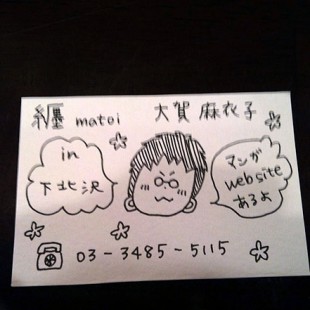 纏 matoi 大賀 麻衣子
in
下北沢
マンガ
website
あるよ
03-3485-5115